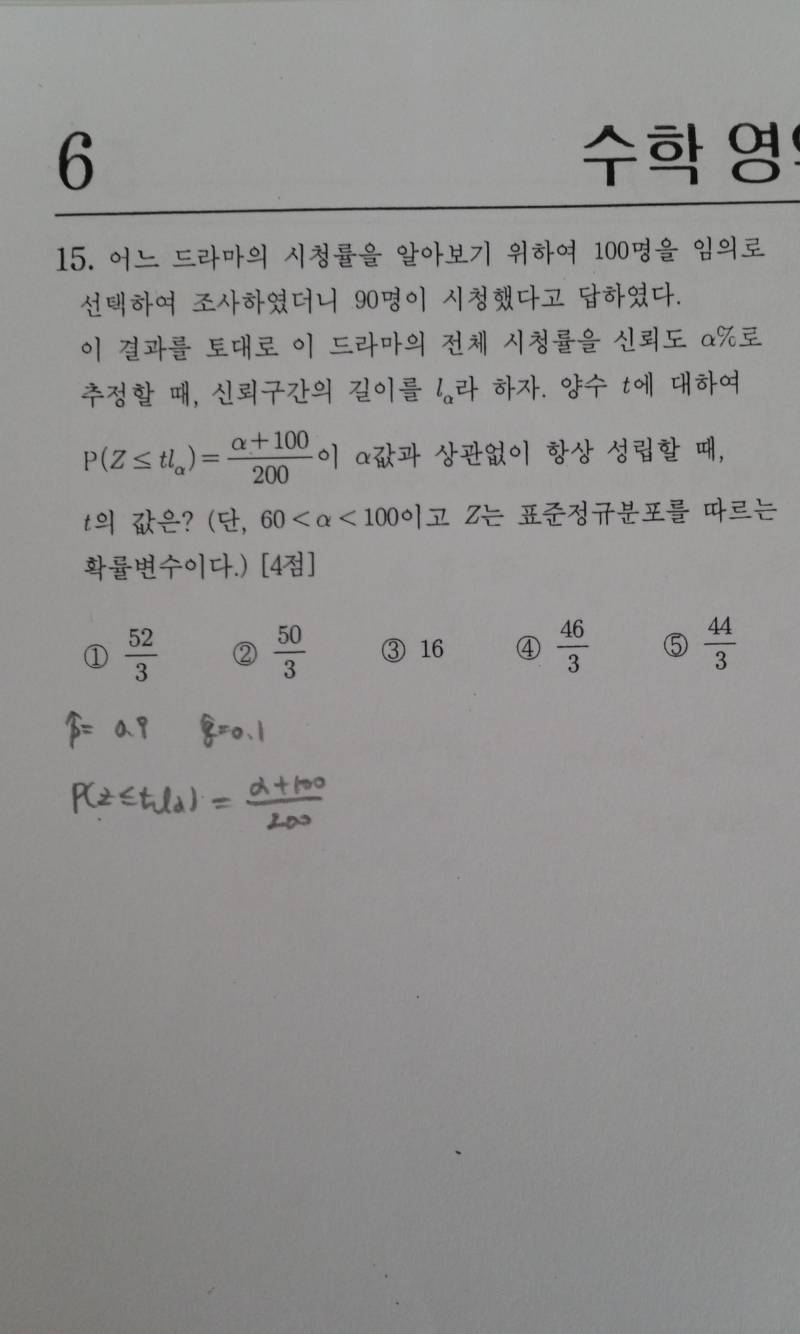 6
수학 영역
15. 어느 드라마의 시청률을 알아보기 위하여 100명을 임의로
선택하여 조사하였더니 90명이 시청했다고 답하였다.
이 결과를 토대로 이 드라마의 전체 시청률을 신뢰도 α%로
추정할 때, 신뢰구간의 길이를 lα라 하자. 양수 t에 대하여
P(Z ≤ tlα) = (α+100)/200 이 α값과 상관없이 항상 성립할 때,
t의 값은? (단, 60 < α < 100이고 Z는 표준정규분포를 따르는
확률변수이다.) [4점]
① 52/3 ② 50/3 ③ 16 ④ 46/3 ⑤ 44/3
p̂= 0.9 q̂=0.1
P(Z≤tlα) = (α+100)/200